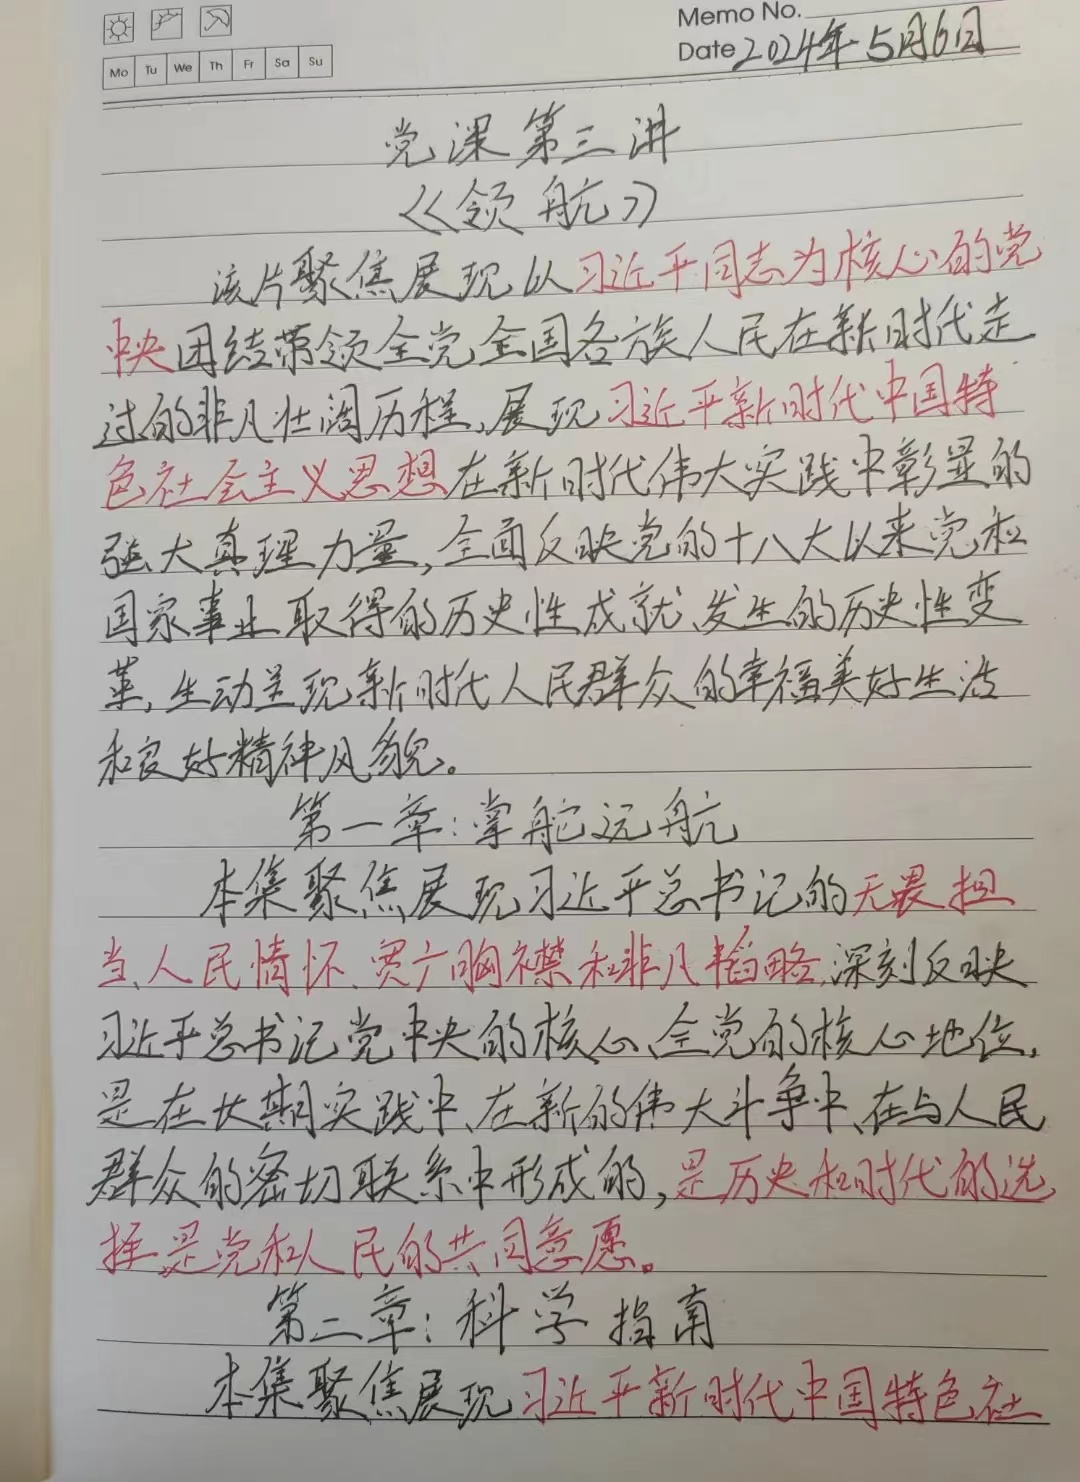 Memo No.
Mo Tu We Th Fr Sa Su
Date 2024年5月6日
党课第三讲
《领航》
该片聚焦展现以习近平同志为核心的党
中央团结带领全党全国各族人民在新时代走
过的非凡壮阔历程,展现习近平新时代中国特
色社会主义思想在新时代伟大实践中彰显的
强大真理力量,全面反映党的十八大以来党和
国家事业取得的历史性成就、发生的历史性变
革,生动呈现新时代人民群众的幸福美好生活
和良好精神风貌。
第一章:掌舵远航
本集聚焦展现习近平总书记的无畏担
当、人民情怀、宽广胸襟和非凡韬略,深刻反映
习近平总书记党中央的核心、全党的核心地位,
是在长期实践中、在新的伟大斗争中、在与人民
群众的密切联系中形成的,是历史和时代的选
择,是党和人民的共同意愿。
第二章:科学指南
本集聚焦展现习近平新时代中国特色社